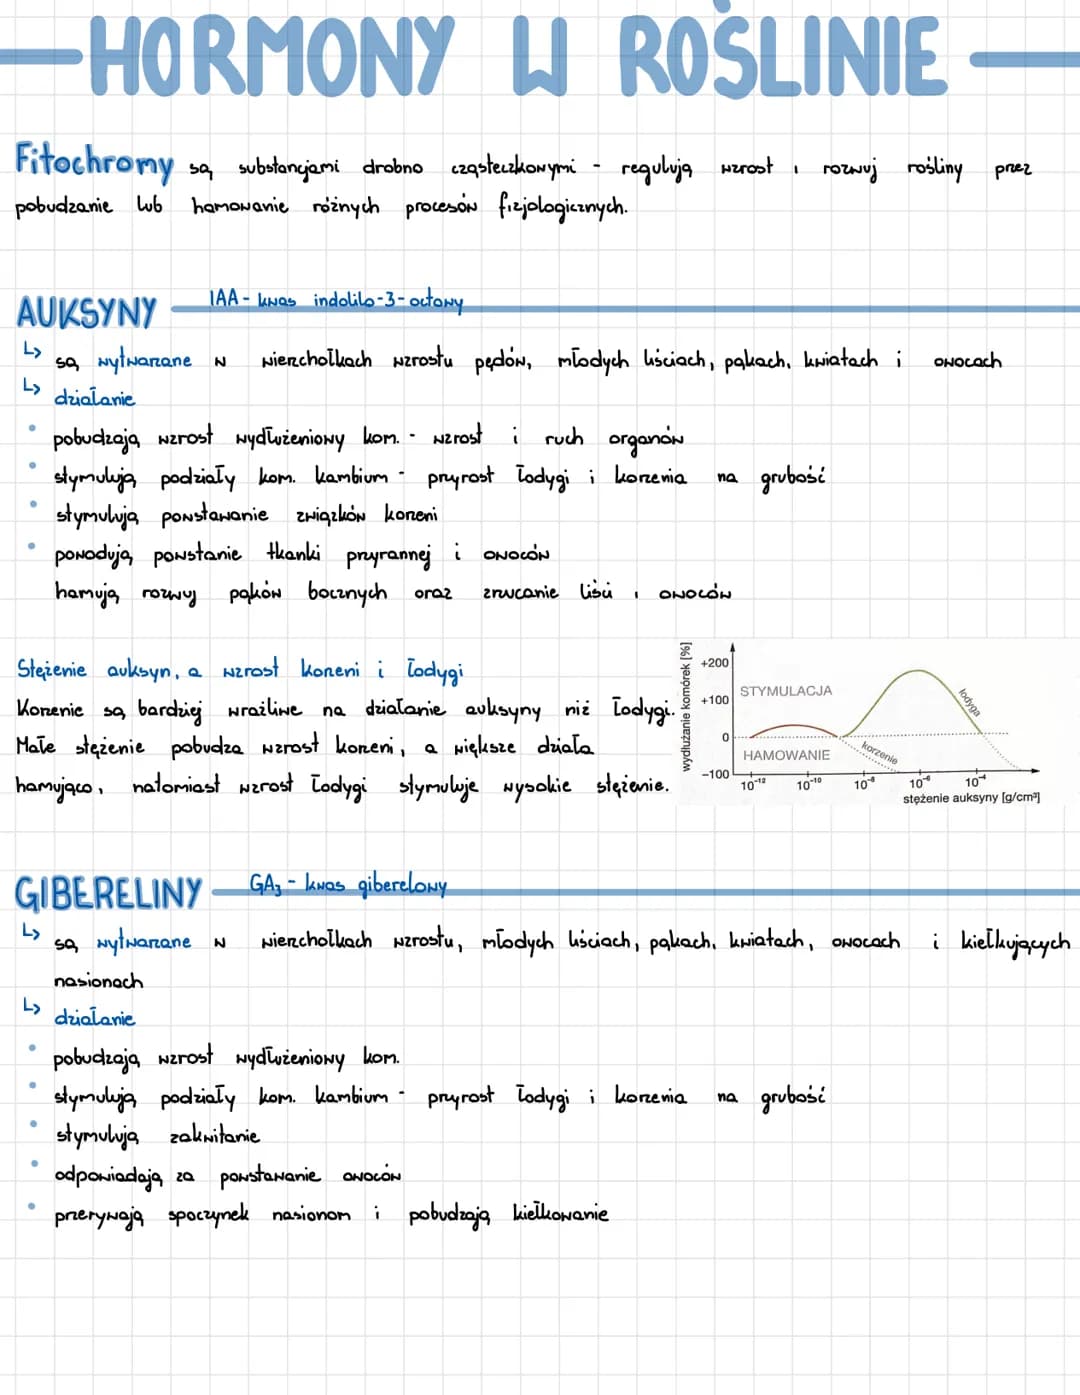 HORMONY W ROŚLINIE
Fitochromy są substancjami drobno cząsteczkowymi - regulują wzrost i rozwój rośliny przez
pobudzanie lub hamowanie różnych procesów fizjologicznych.
AUKSYNY IAA - kwas indolilo-3-octowy
↳ są wytwarzane w wierzchołkach wzrostu pędów, młodych liściach, pąkach, kwiatach i owocach
↳ działanie
• pobudzają wzrost wydłużeniowy kom. - wzrost i ruch organów
• stymulują podziały kom. kambium - przyrost łodygi i korzenia na grubość
• stymulują powstawanie związków korzeni
• powodują powstanie tkanki przyrannej i owoców
hamują rozwój pąków bocznych oraz zrzucanie liści i owoców
Stężenie auksyn, a wzrost korzeni i łodygi
Korzenie są bardziej wrażliwe na działanie auksyny niż łodygi.
Małe stężenie pobudza wzrost korzeni, a większe działa
hamująco, natomiast wzrost łodygi stymuluje wysokie stężenie.
wydłużanie komórek [%]
+200
+100
0
-100
STYMULACJA
HAMOWANIE
łodyga
korzenie
10⁻¹² 10⁻¹⁰ 10⁻⁸ 10⁻⁶ 10⁻⁴
stężenie auksyny [g/cm³]
GIBERELINY GA₃ - kwas giberelowy
↳ są wytwarzane w wierzchołkach wzrostu, młodych liściach, pąkach, kwiatach, owocach i kiełkujących
nasionach
↳ działanie
• pobudzają wzrost wydłużeniowy kom.
• stymulują podziały kom. kambium - przyrost łodygi i korzenia na grubość
• stymulują zakwitanie
• odpowiadają za powstawanie owoców
• przerywają spoczynek nasionom i pobudzają kiełkowanie